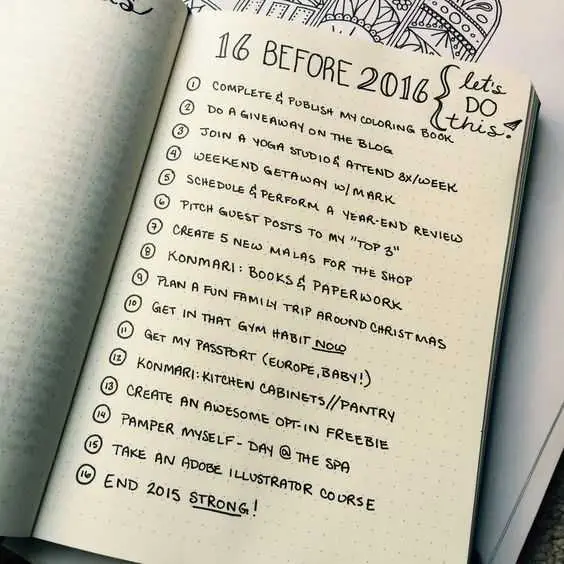 16 BEFORE 2016 { let's DO this!
① COMPLETE & PUBLISH MY COLORING BOOK
② DO A GIVEAWAY ON THE BLOG
③ JOIN A YOGA STUDIO & ATTEND 3X/WEEK
④ WEEKEND GETAWAY W/MARK
⑤ SCHEDULE & PERFORM A YEAR-END REVIEW
⑥ PITCH GUEST POSTS TO MY "TOP 3"
⑦ CREATE 5 NEW MALAS FOR THE SHOP
⑧ KONMARI: BOOKS & PAPERWORK
⑨ PLAN A FUN FAMILY TRIP AROUND CHRISTMAS
⑩ GET IN THAT GYM HABIT NOW
⑪ GET MY PASSPORT (EUROPE, BABY!)
⑫ KONMARI: KITCHEN CABINETS//PANTRY
⑬ CREATE AN AWESOME OPT-IN FREEBIE
⑭ PAMPER MYSELF - DAY @ THE SPA
⑮ TAKE AN ADOBE ILLUSTRATOR COURSE
⑯ END 2015 STRONG!